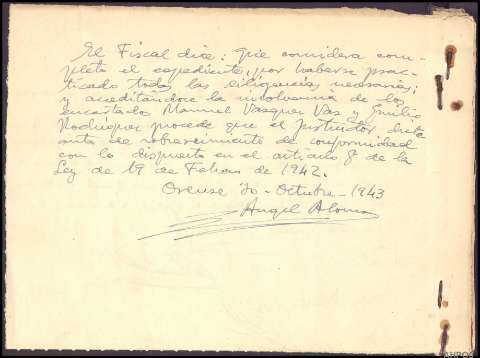 El Fiscal dice: que considera com-
pleto el expediente, por haberse prac-
ticado todas las diligencias necesarias;
y acreditándose la insolvencia de los
encartados Manuel Vazquez Vaz y Emilio
Rodriguez procede que el Instructor dicte
auto de sobreseimiento de conformidad
con lo dispuesto en el artículo 8 de la
Ley de 19 de Febrero de 1942.
Orense 20 - Octubre - 1943
Angel Alonso